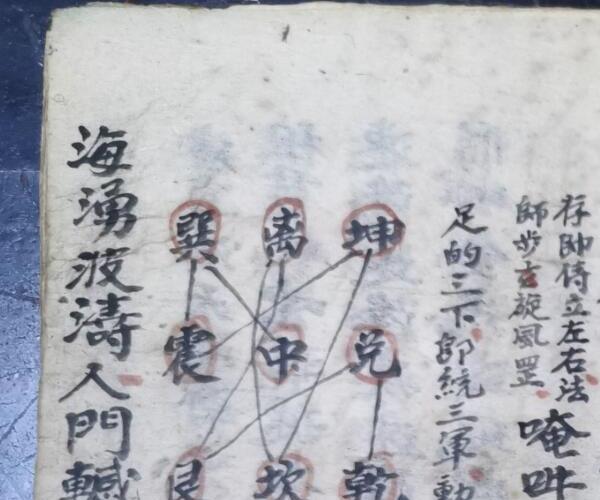 存帥侍立左右法
師步玄旋風罡 唵吽
足的三下郎統三軍動
坤 离 巽
兑 中 震
乾 坎 艮
海湧波濤人門轟